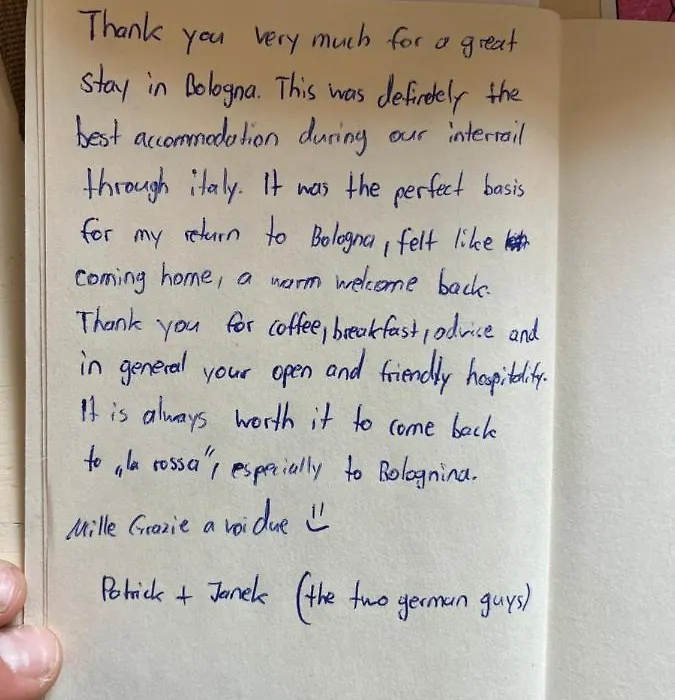 Thank you very much for a great
stay in Bologna. This was definetely the
best accommodation during our interrail
through italy. It was the perfect basis
for my return to Bologna, felt like
coming home, a warm welcome back.
Thank you for coffee, breakfast, advice and
in general your open and friendly hospitality.
It is always worth it to come back
to „la rossa“, especially to Bolognina.
Mille Grazie a voi due
Patrick + Janek (the two german guys)